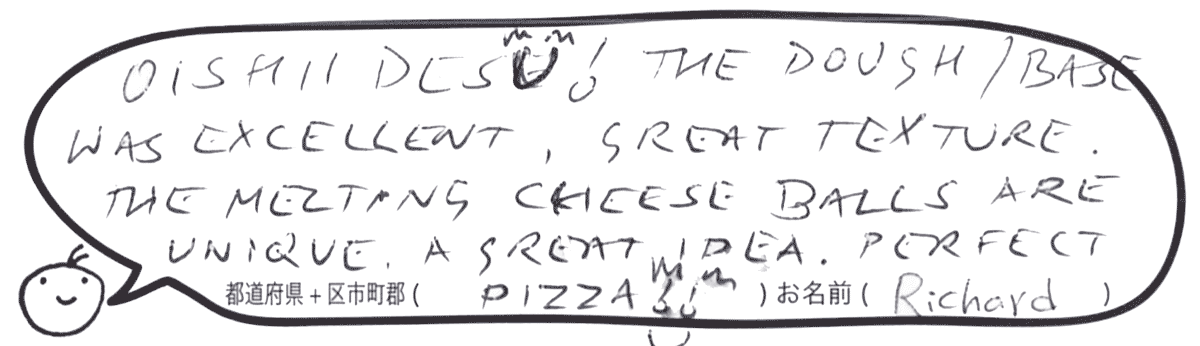 OISHII DESU! THE DOUGH/BASE
WAS EXCELLENT, GREAT TEXTURE.
THE MELTING CHEESE BALLS ARE
UNIQUE. A GREAT IDEA. PERFECT
都道府県+区市町郡( PIZZA!! )お名前( Richard )